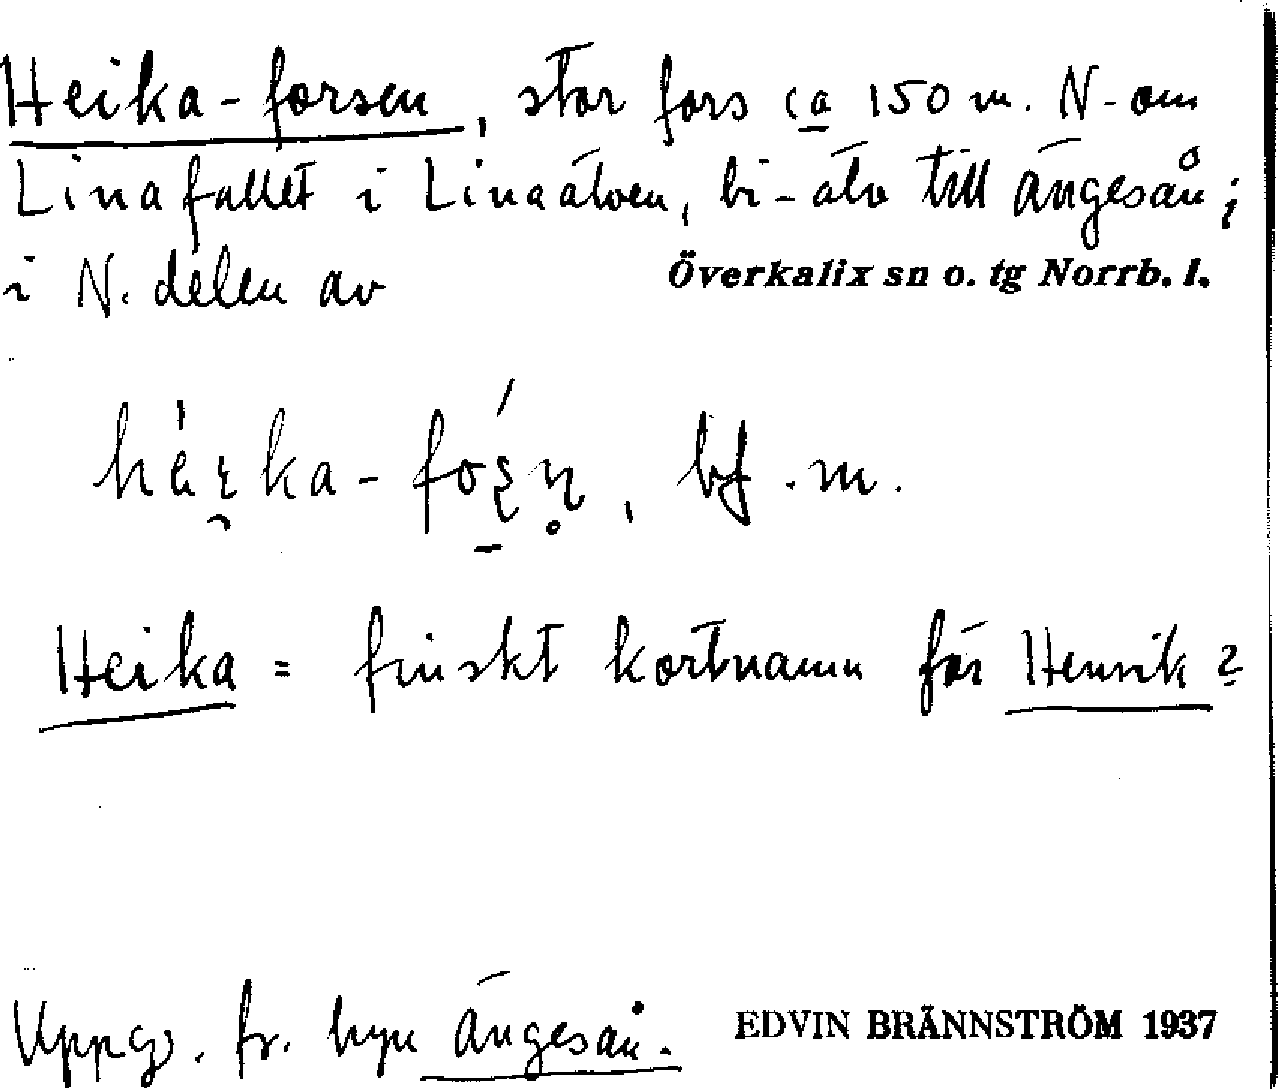 Heika-forsen, stor fors ca 150 m. N-om
Linafallet i Linaälven, bi-älv till Ängesån;
i N. delen av Överkalix sn o. tg Norrb. l.
bf. m.
Heika = finskt kortnamn för Henrik?
Uppg. fr. byn Ängesån.
EDVIN BRÄNNSTRÖM 1937